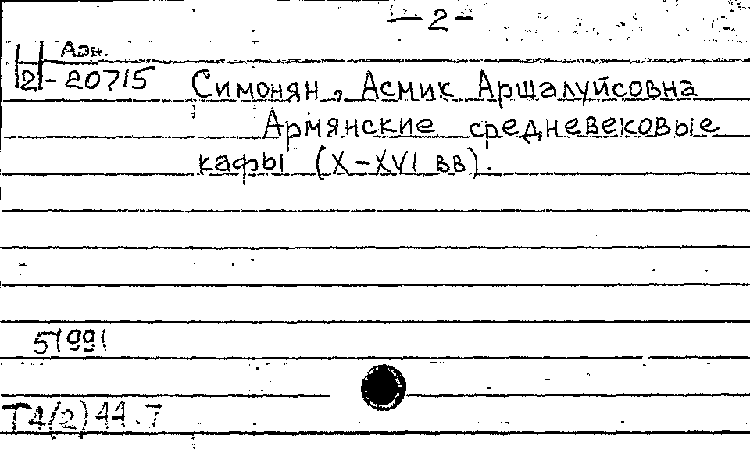 — 2 —
Адн.
2-20715 Симонян, Асмик Аршалуйсовна
Армянские средневековые
кафы (X-XVI вв).
51991
Т4(2)44.7